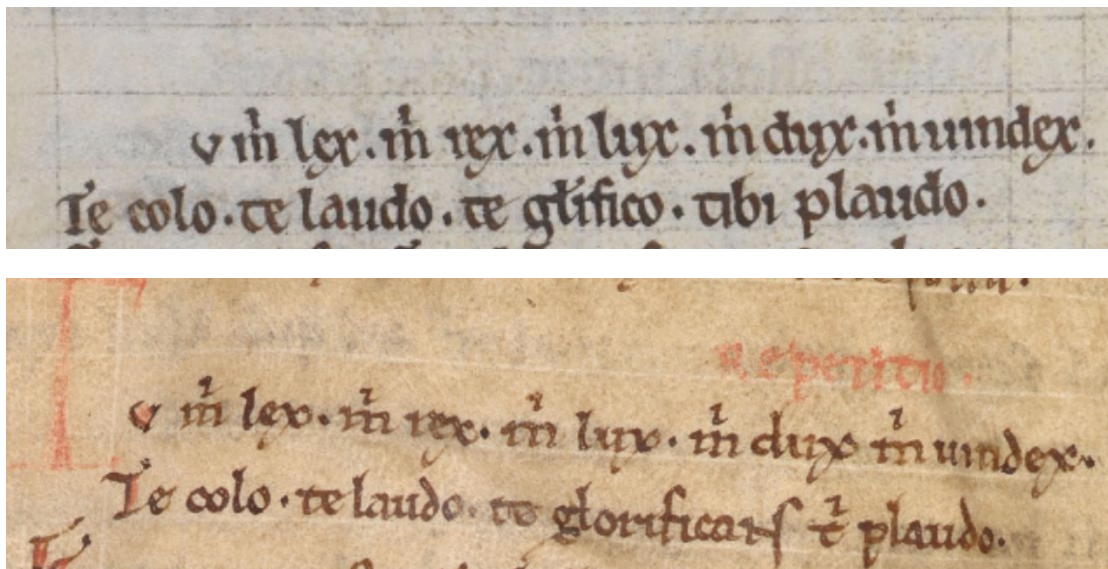 v m̊ lex. m̊ rex. m̊ lux. m̊ dux. m̊ uindex.
Te colo. te laudo. te gl̄ifico. tibi plaudo.
Repetitio.
T v m̊ lex. m̊ rex. m̊ lux. m̊ dux m̊ uindex.
Te colo. te laudo. te glorificans t̊ plaudo.